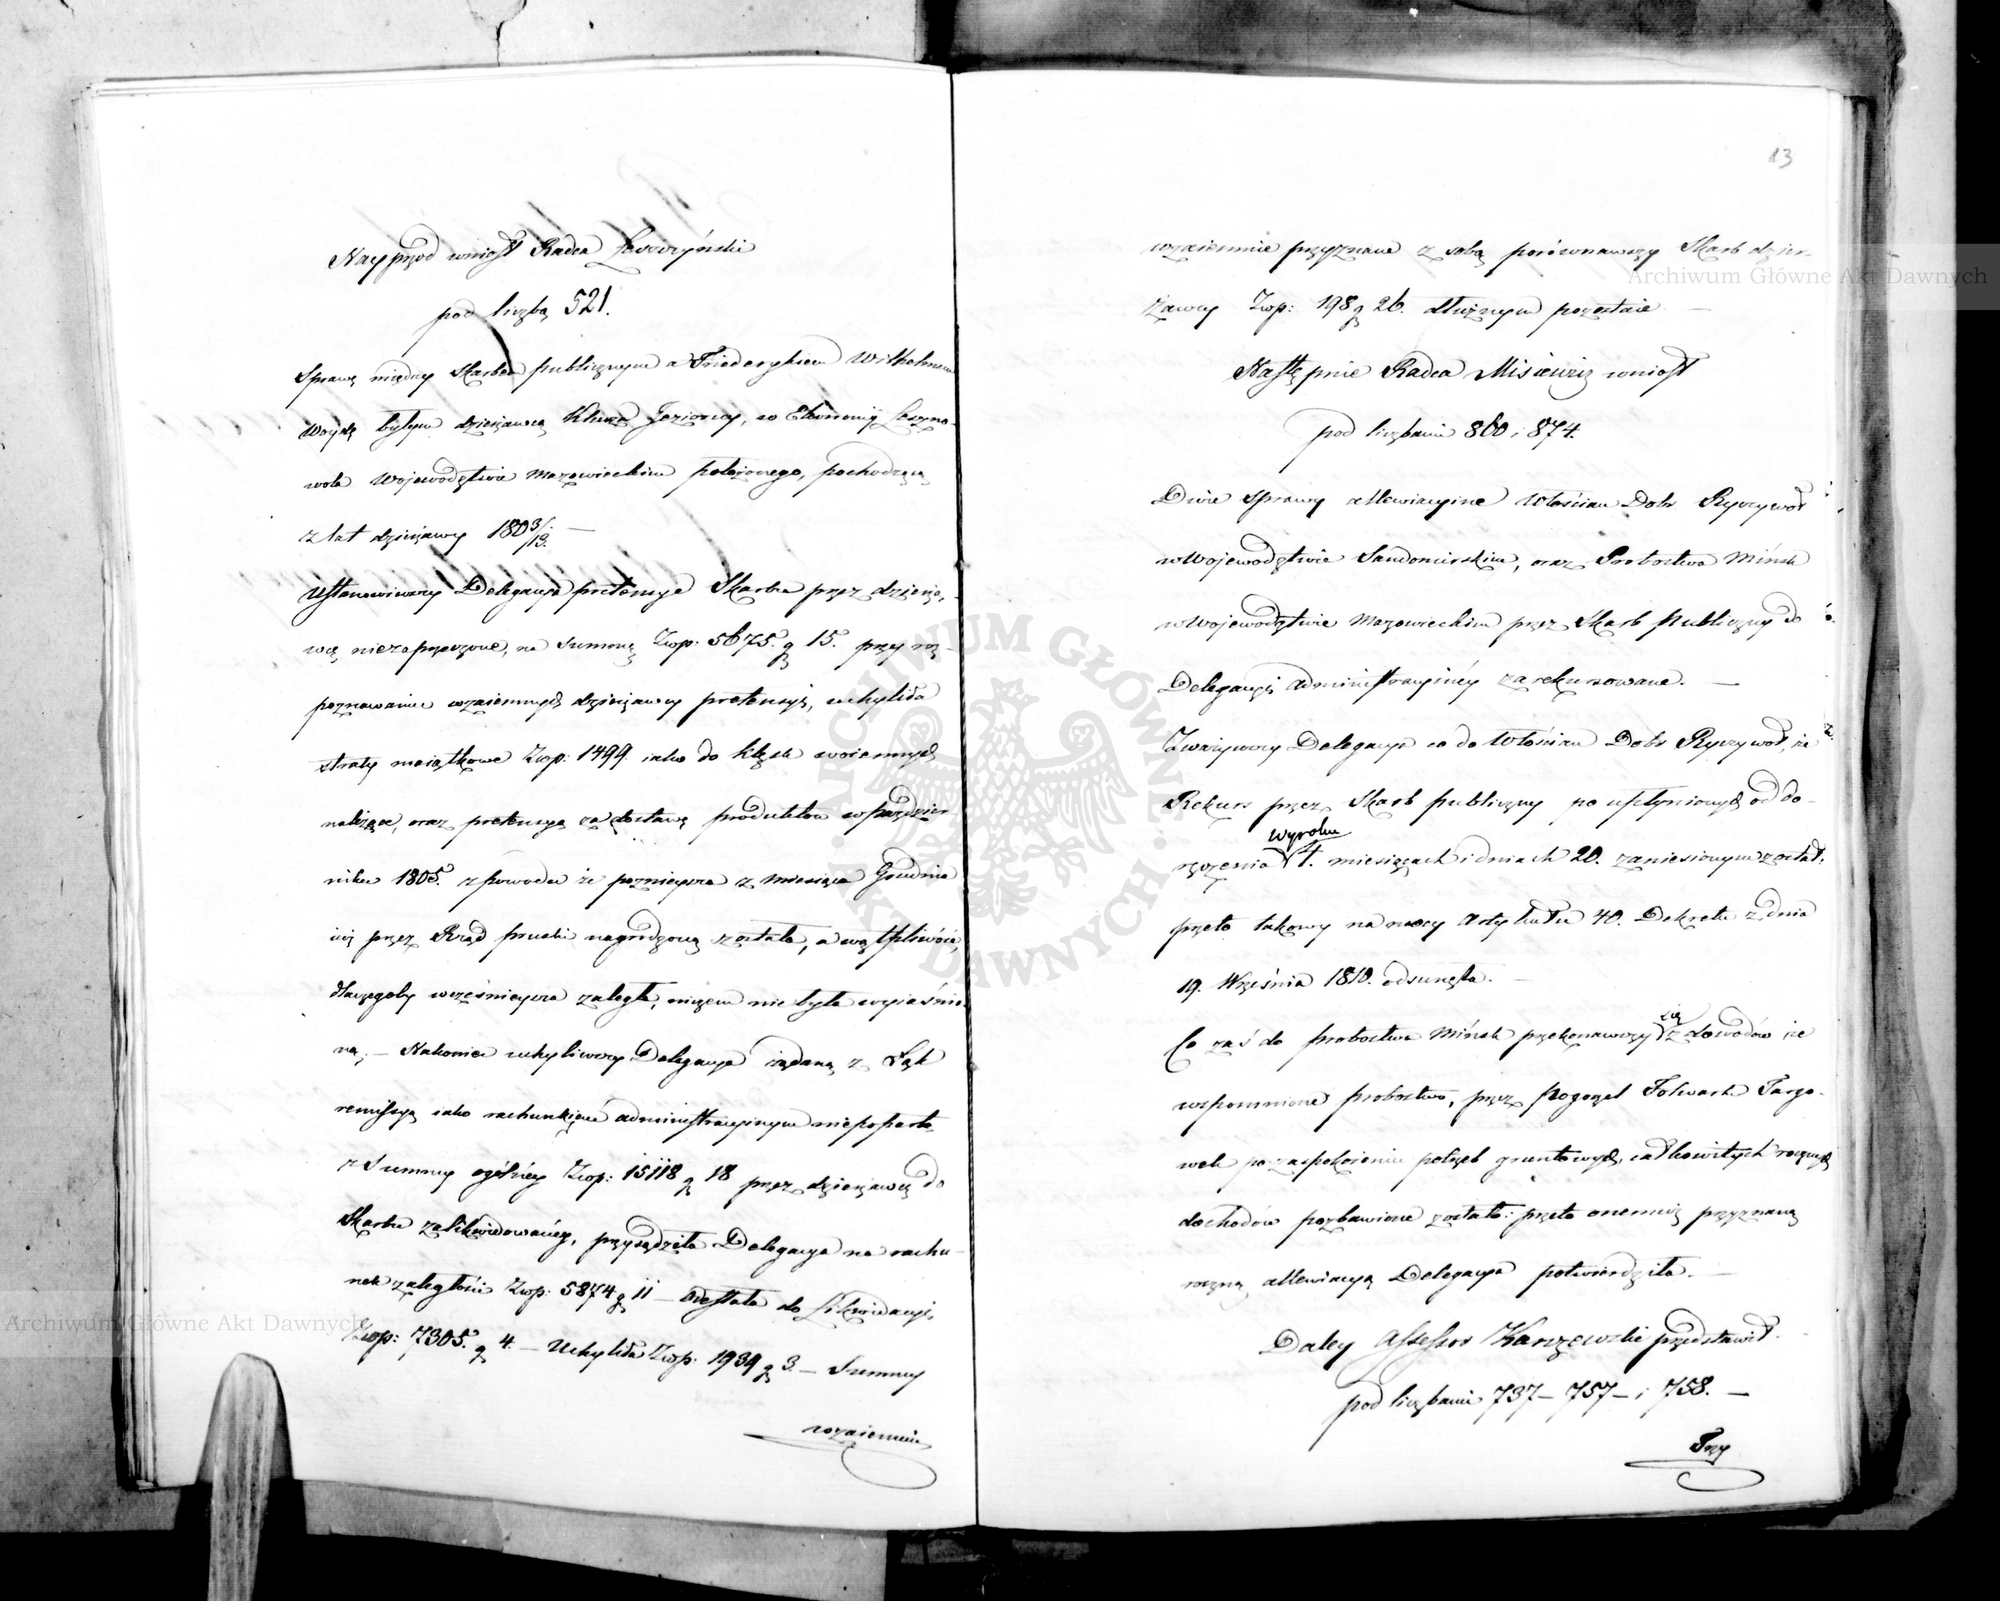 Nayprzod wniosł Radca Łaszczyński
pod liczbą 521.
Sprawę między Skarbem publicznym a Friederykiem Wilhelmem
Woydą byłym dzierżawcą Klucza Jeziorny, w Ekonomij Leszno-
wola Wojewodztwie Mazowieckim położonego, pochodzącą
z lat dzierżawy 180 3/13. —
Ustanowiwszy Delegacya pretensye Skarbu przez dzierża-
wcę niezaprzeczone, na Summę Złp: 5675. g 15. przy roz-
poznawaniu wzaiemnych dzierżawcy pretensyi, uchyliła
straty maiątkowe Złp: 1499. iako do klęsk woiennych
należące, oraz pretensyą za dostawę produktów w Paździer-
niku 1805. z powodu że poznieysza z miesiąca Grudnia
iuż przez Rząd pruski nagrodzoną została, a wątpliwość,
dlaczegoby wcześnieysza zaległa, niczem nie była wyiaśnio-
ną; — Nakoniec uchyliwszy Delegacya żądaną z Łąk
remissyą iako rachunkiem administracyinym niepopartą
z Summy ogólney Złp: 15118 g 18 przez dzierżawcę do
Skarbu zalikwidowaney, przysądziła Delegacya na rachu-
nek zaległości Złp: 5874 g 11 — Odesłała do Likwidacyi,
Złp: 7305. g 4. — Uchyliła Złp: 1939 g 3. — Summy
wzaiemnie
13
wzaiemnie przyznane z sobą porównawszy Skarb dzier-
żawcy Złp: 198 g 26. dłużnym pozostaie. —
Następnie Radca Misiewicz wniosł
pod liczbami 860 i 874.
Dwie Sprawy allewiacyine Włościan Dobr Ryczywoł
w Wojewodztwie Sandomirskim, oraz Probostwa Mińsk
w Wojewodztwie Mazowieckim przez Skarb Publiczny do
Delegacyi Administracyiney zarekursowane. —
Zważywszy Delegacya co do Włościan Dobr Ryczywoł, że
Rekurs przez Skarb publiczny po upłynionych od do-
wyroku
ręczenia 4. miesiącach i dniach 20. zaniesionym został,
przeto takowy na mocy Artykułu 40. Dekretu z dnia
19. Września 1810. odsunęła. —
się
Co zaś do Probostwa Mińsk przekonawszy z dowodów że
wspomnione Probostwo, przez Pogorzel Folwarku Targo-
wek po zaspokoieniu potrzeb gruntowych, całkowitych rocznych
dochodów pozbawione zostało: przeto onemuż przyznaną
roczną allewiacyą Delegacya potwierdziła. —
Daley Assessor Karczewski przedstawił
pod liczbami 737 — 757 — i 758. —
Trzy
Archiwum Główne Akt Dawnych
Archiwum Główne Akt Dawnych
ARCHIWUM GŁÓWNE AKT DAWNYCH